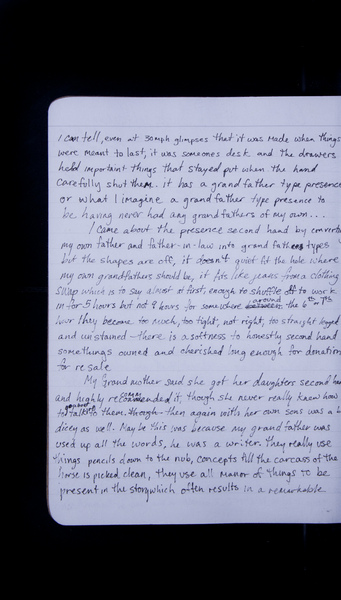 I can tell, even at 30mph glimpses that it was made when things
were meant to last, it was someones desk and the drawers
held important things that stayed put when the hand
carefully shut them. it has a grandfather type presence
or what I imagine a grandfather type presence to
be having never had any grandfathers of my own...
I came about the presence second hand by converting
my own father and father-in-law into grandfather types
but the shapes are off, it doesn't quiet fit the hole where
my own grandfathers should be, it fits like jeans from a clothing
swap which is to say almost at first, enough to shuffle off to work
in for 5 hours but not 8 hours for somewhere around the 6th or 7th
hour they become too much, too tight, not right, too straight legged
and unistained - there is a softness to honestly second hand
somethings owned and cherished long enough for donation
for resale.
My Grandmother said she got her daughters second hand
and highly recommended it, though she never really knew how
to talk to them, though - then again with her own sons was a bit
dicey as well. May be this was because my grandfather was
used up all the words, he was a writer. They really use
things pencils down to the nub, concepts till the carcass of the
horse is picked clean, they use all manor of things to be
present in the story which often results in a remarkable